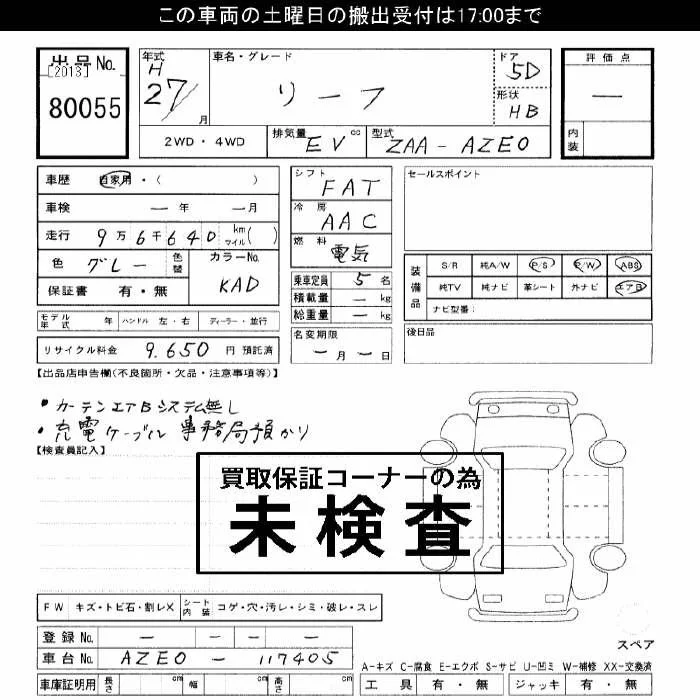 この車両の土曜日の搬出受付は17:00まで
出品No.
[2013]
80055
年式
H
27/
月
車名・グレード
リーフ
ドア
5D
形状
HB
評価点
―
内装
2WD・4WD
排気量 EV cc
型式 ZAA-AZE0
車歴 自家用・( )
車検 ― 年 ― 月
走行 9万6千640 km マイル( )
色 グレー 色替
カラーNo.
KAD
保証書 有・無
モデル年式 年 ハンドル 左・右 ディーラー・並行
リサイクル料金 9,650 円 預託済
シフト
FAT
冷房
AAC
燃料
電気
乗車定員 5名
積載量 ― kg
総重量 ― kg
名変期限
―月―日
セールスポイント
装備品
S/R 純A/W P/S P/W ABS
純TV 純ナビ 革シート 外ナビ エアB
ナビ型番:
後日品
【出品店申告欄(不良箇所・欠品・注意事項等)】
・カーテンエアBシステム無し
・充電ケーブル 事務局預かり
【検査員記入】
買取保証コーナーの為
未検査
FW キズ・トビ石・割レX シート内装 コゲ・穴・汚レ・シミ・破レ・スレ
登録No. ― ― ―
車台No. AZE0 - 117405
車庫証明用 長さ cm 幅 cm 高さ cm
スペア
A-キズ C-腐食 E-エクボ S-サビ U-凹ミ W-補修 XX-交換済
工具 有・無 ジャッキ 有・無